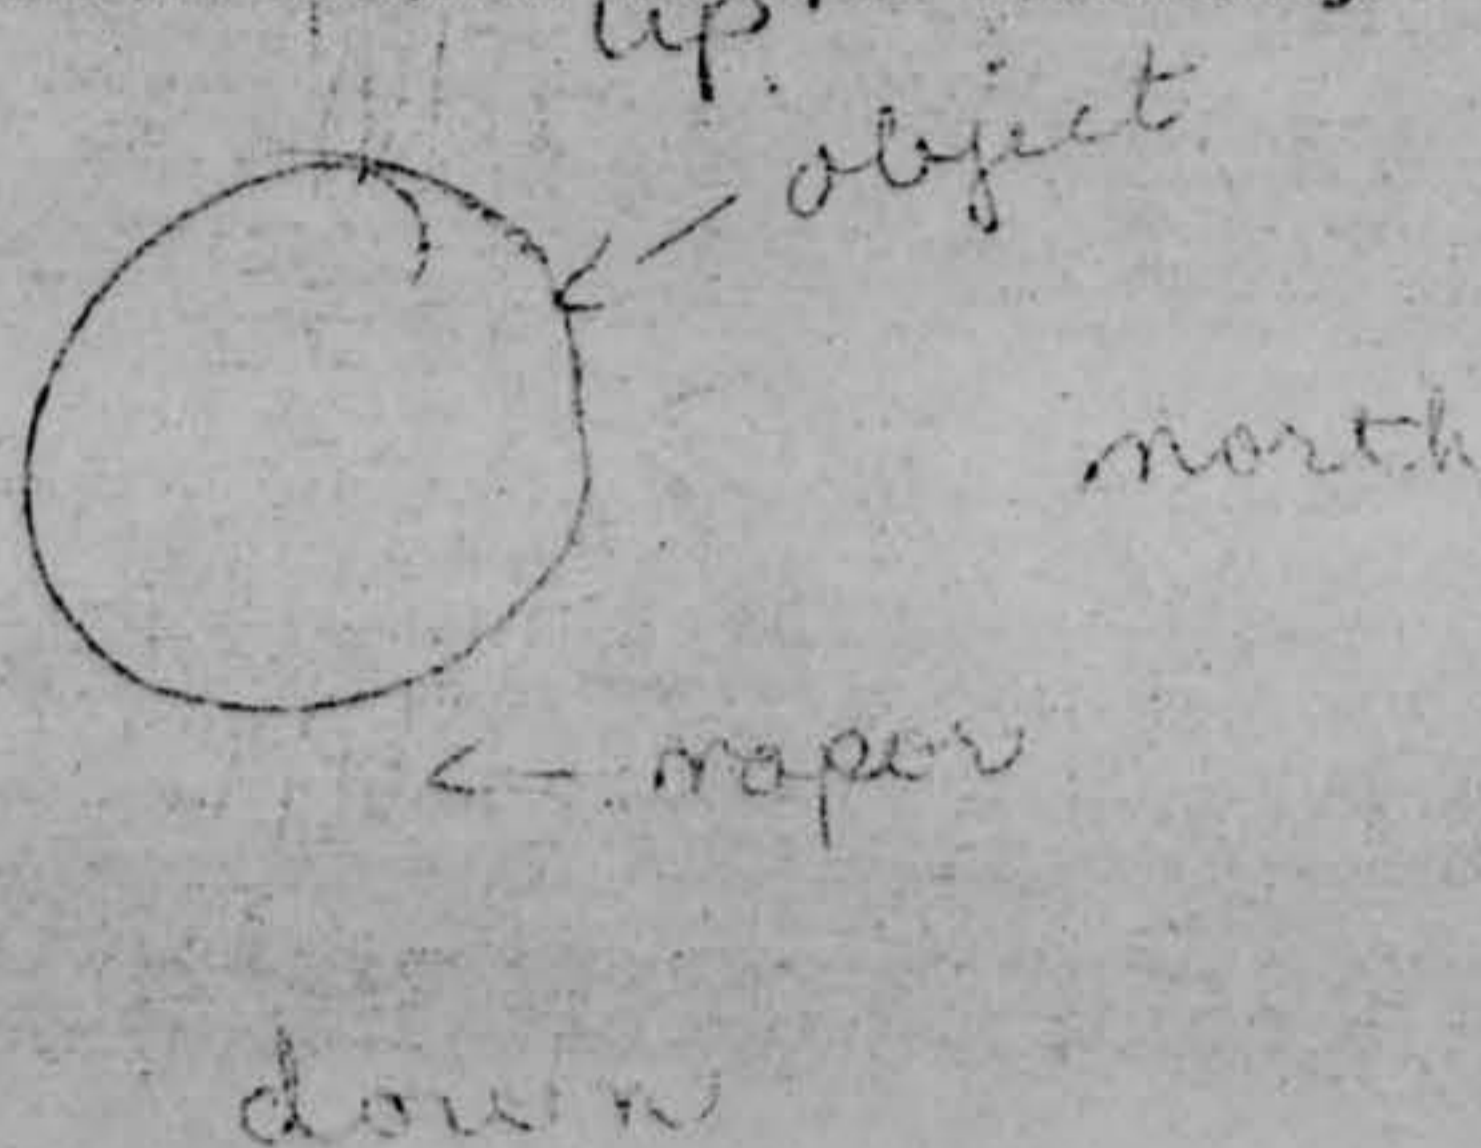 up.
object
north
← vapor
down